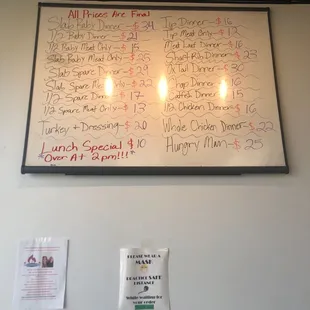 All Prices Are Final
Slab Baby Dinner - $ 34
1/2 Baby Dinner - $ 21
1/2 Baby Meat Only - $ 15
Slab Baby Meat Only - $ 25
Slab Spare Dinner - $ 29
Slab Spare Meat Only - $ 22
1/2 Spare Dinner - $ 17
1/2 Spare Meat Only - $ 13
Turkey + Dressing - $ 20
Lunch Special $ 10
*Over At 2pm!!!*
Tip Dinner - $ 16
Tip Meat Only - $ 12
Meat Loaf Dinner - $ 16
Short Rib Dinner - $ 23
Ox Tail Dinner - $
Dinner - $ 16
Dinner - $ 15
1/2 Chicken Dinner - $ 16
Whole Chicken Dinner - $ 22
Hungry Man - $ 25
PLEASE WEAR A
MASK
PRACTICE SAFE
DISTANCE
while waiting for
your order